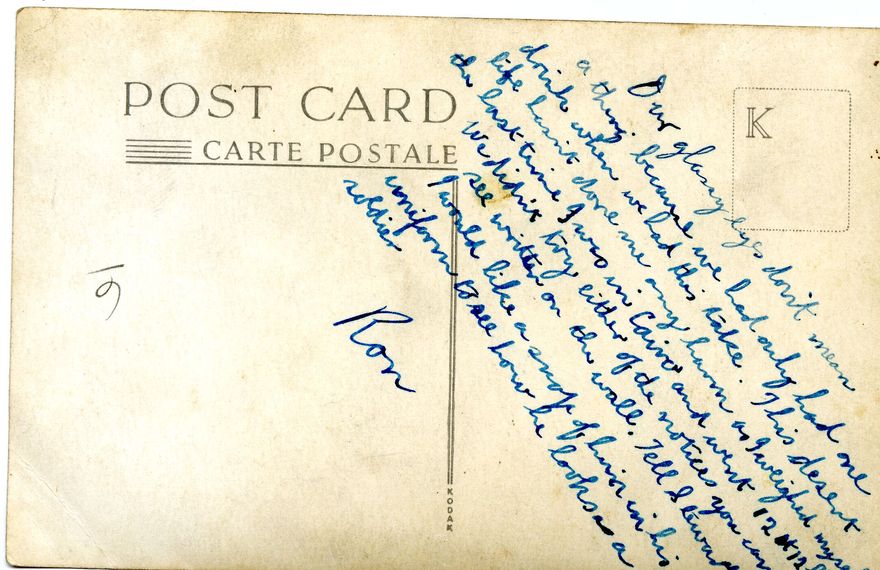 POST CARD
CARTE POSTALE
K
Our glassy eyes don't mean
a thing because we had only had one
drink when we had this take. This desert
life hasn't done me any harm as I weighed myself
the last time I was in Cairo and went 12 st 12
We didn't try either of the notices you can
see written on the wall. Tell Stewar
I would like a snap of him in his
uniform to see how he looks a
soldier
Ron
KODAK